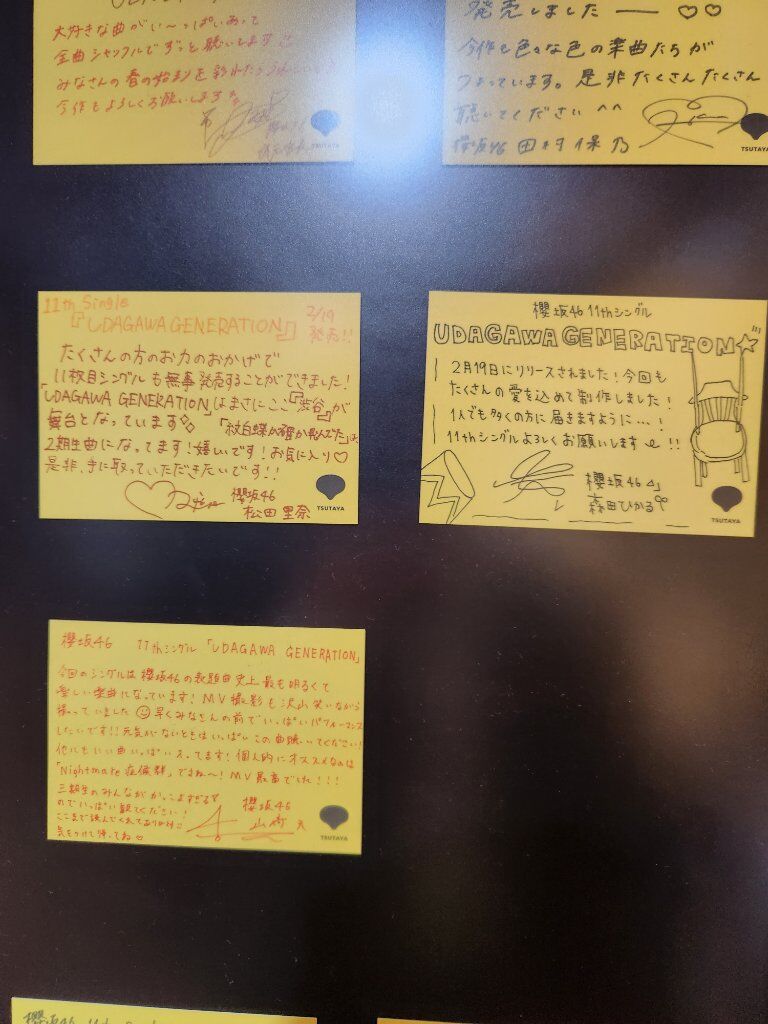 大好きな曲がい〜っぱいあって
全曲シャッフルでずっと聴いてます
みなさんの春の始まりを彩れたら
今作もよろしくお願いします
TSUTAYA
発売しました ── ♡♡
今作も色々な色の楽曲たちが
つまっています。是非たくさんたくさん
聴いてください ^^
櫻坂46 田村保乃
TSUTAYA
11th Single 2/19
『UDAGAWA GENERATION』 発売!!
たくさんの方のお力のおかげで
11枚目シングルも無事発売することができました!
「UDAGAWA GENERATION」はまさにここ『渋谷』が
舞台となっています 「紋白蝶が確か飛んでた」は
2期生曲になってます!嬉しいです!お気に入り♡
是非、手に取っていただきたいです!!
櫻坂46
松田里奈
TSUTAYA
櫻坂46 11thシングル
UDAGAWA GENERATION☆
2月19日にリリースされました!今回も
たくさんの愛を込めて制作しました!
1人でも多くの方に届きますように…!
11thシングルよろしくお願いします !!
櫻坂46
森田ひかる
TSUTAYA
櫻坂46 11thシングル「UDAGAWA GENERATION」
今回のシングルは櫻坂46の表題曲史上最も明るくて
楽しい楽曲になっています!MV撮影も沢山笑いながら
撮っていました 早くみなさんの前でいっぱいパフォーマンス
したいです!!元気がないときはいっぱいこの曲聴いてください!
他にもいい曲いっぱい入ってます!個人的にオススメなのは
「Nightmare症候群」ですね〜!MV最高でした!!!
三期生のみんながかっこよすぎる
のでいっぱい観てください!
ここまで読んでくれてありがとう
気をつけて帰ってね
櫻坂46
山﨑 天
TSUTAYA
櫻坂46 11th